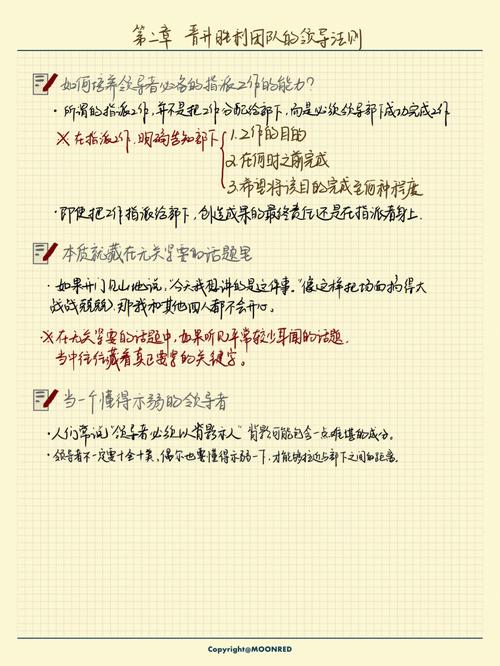 第二章 晋升胜利团队的领导法则
如何培养领导者必备的指派工作的能力?
· 所谓的指派工作,并不是把工作分配给部下,而是必须领导部下成功完成工作.
※ 在指派工作,明确告知部下
1.工作的目的
2.在何时之前完成
3.希望将该目的完成至何种程度
· 即使把工作指派给部下,创造成果的最终责任还是在指派者身上.
本质就藏在无关紧要的话题里
· 如果开门见山地说,"今天我想讲的是这件事."像这样把场面搞得大
战战兢兢,那我和其他四人都不会开心。
·※ 在无关紧要的话题中,如果听见平常较少耳闻的话题,
当中往往藏着真正重要的关键字。
当一个懂得示弱的领导者
· 人们常说"领导者必须以背影示人"背影可能包含一点难堪的成分。
· 领导者不一定要十全十美,偶尔也要懂得示弱一下,才能够拉近与部下之间的距离。
Copyright@MOONRED